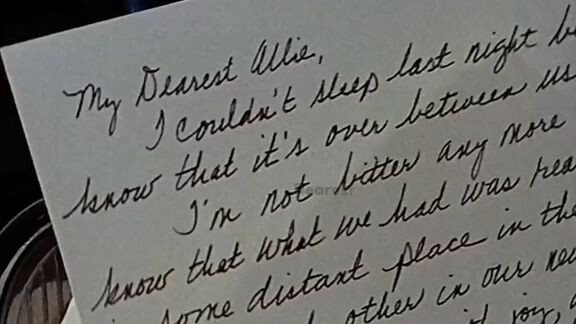 My Dearest Allie,
I couldn't sleep last night b
know that it's over between us
I'm not bitter any more
know that what we had was rea
some distant place in the
other in our ne
joy,